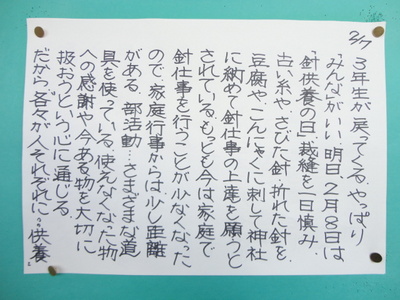 2/7
3年生が戻ってくる。やっぱり
「みんながいい」明日、2月8日は
「針供養の日」裁縫を一日慎み、
古い糸や、さびた針、折れた針を、
豆腐や、こんにゃくに刺して神社
に納めて針仕事の上達を願うと
されている。もっとも今は家庭で
針仕事を行うことが少なくなった
ので、家庭行事からは少し距離
がある。部活動…さまざまな道
具を使っている。使えなくなった物
への感謝や今ある物を大切に
扱おうという心に通じる。
だから、各々が人それぞれに。供養。